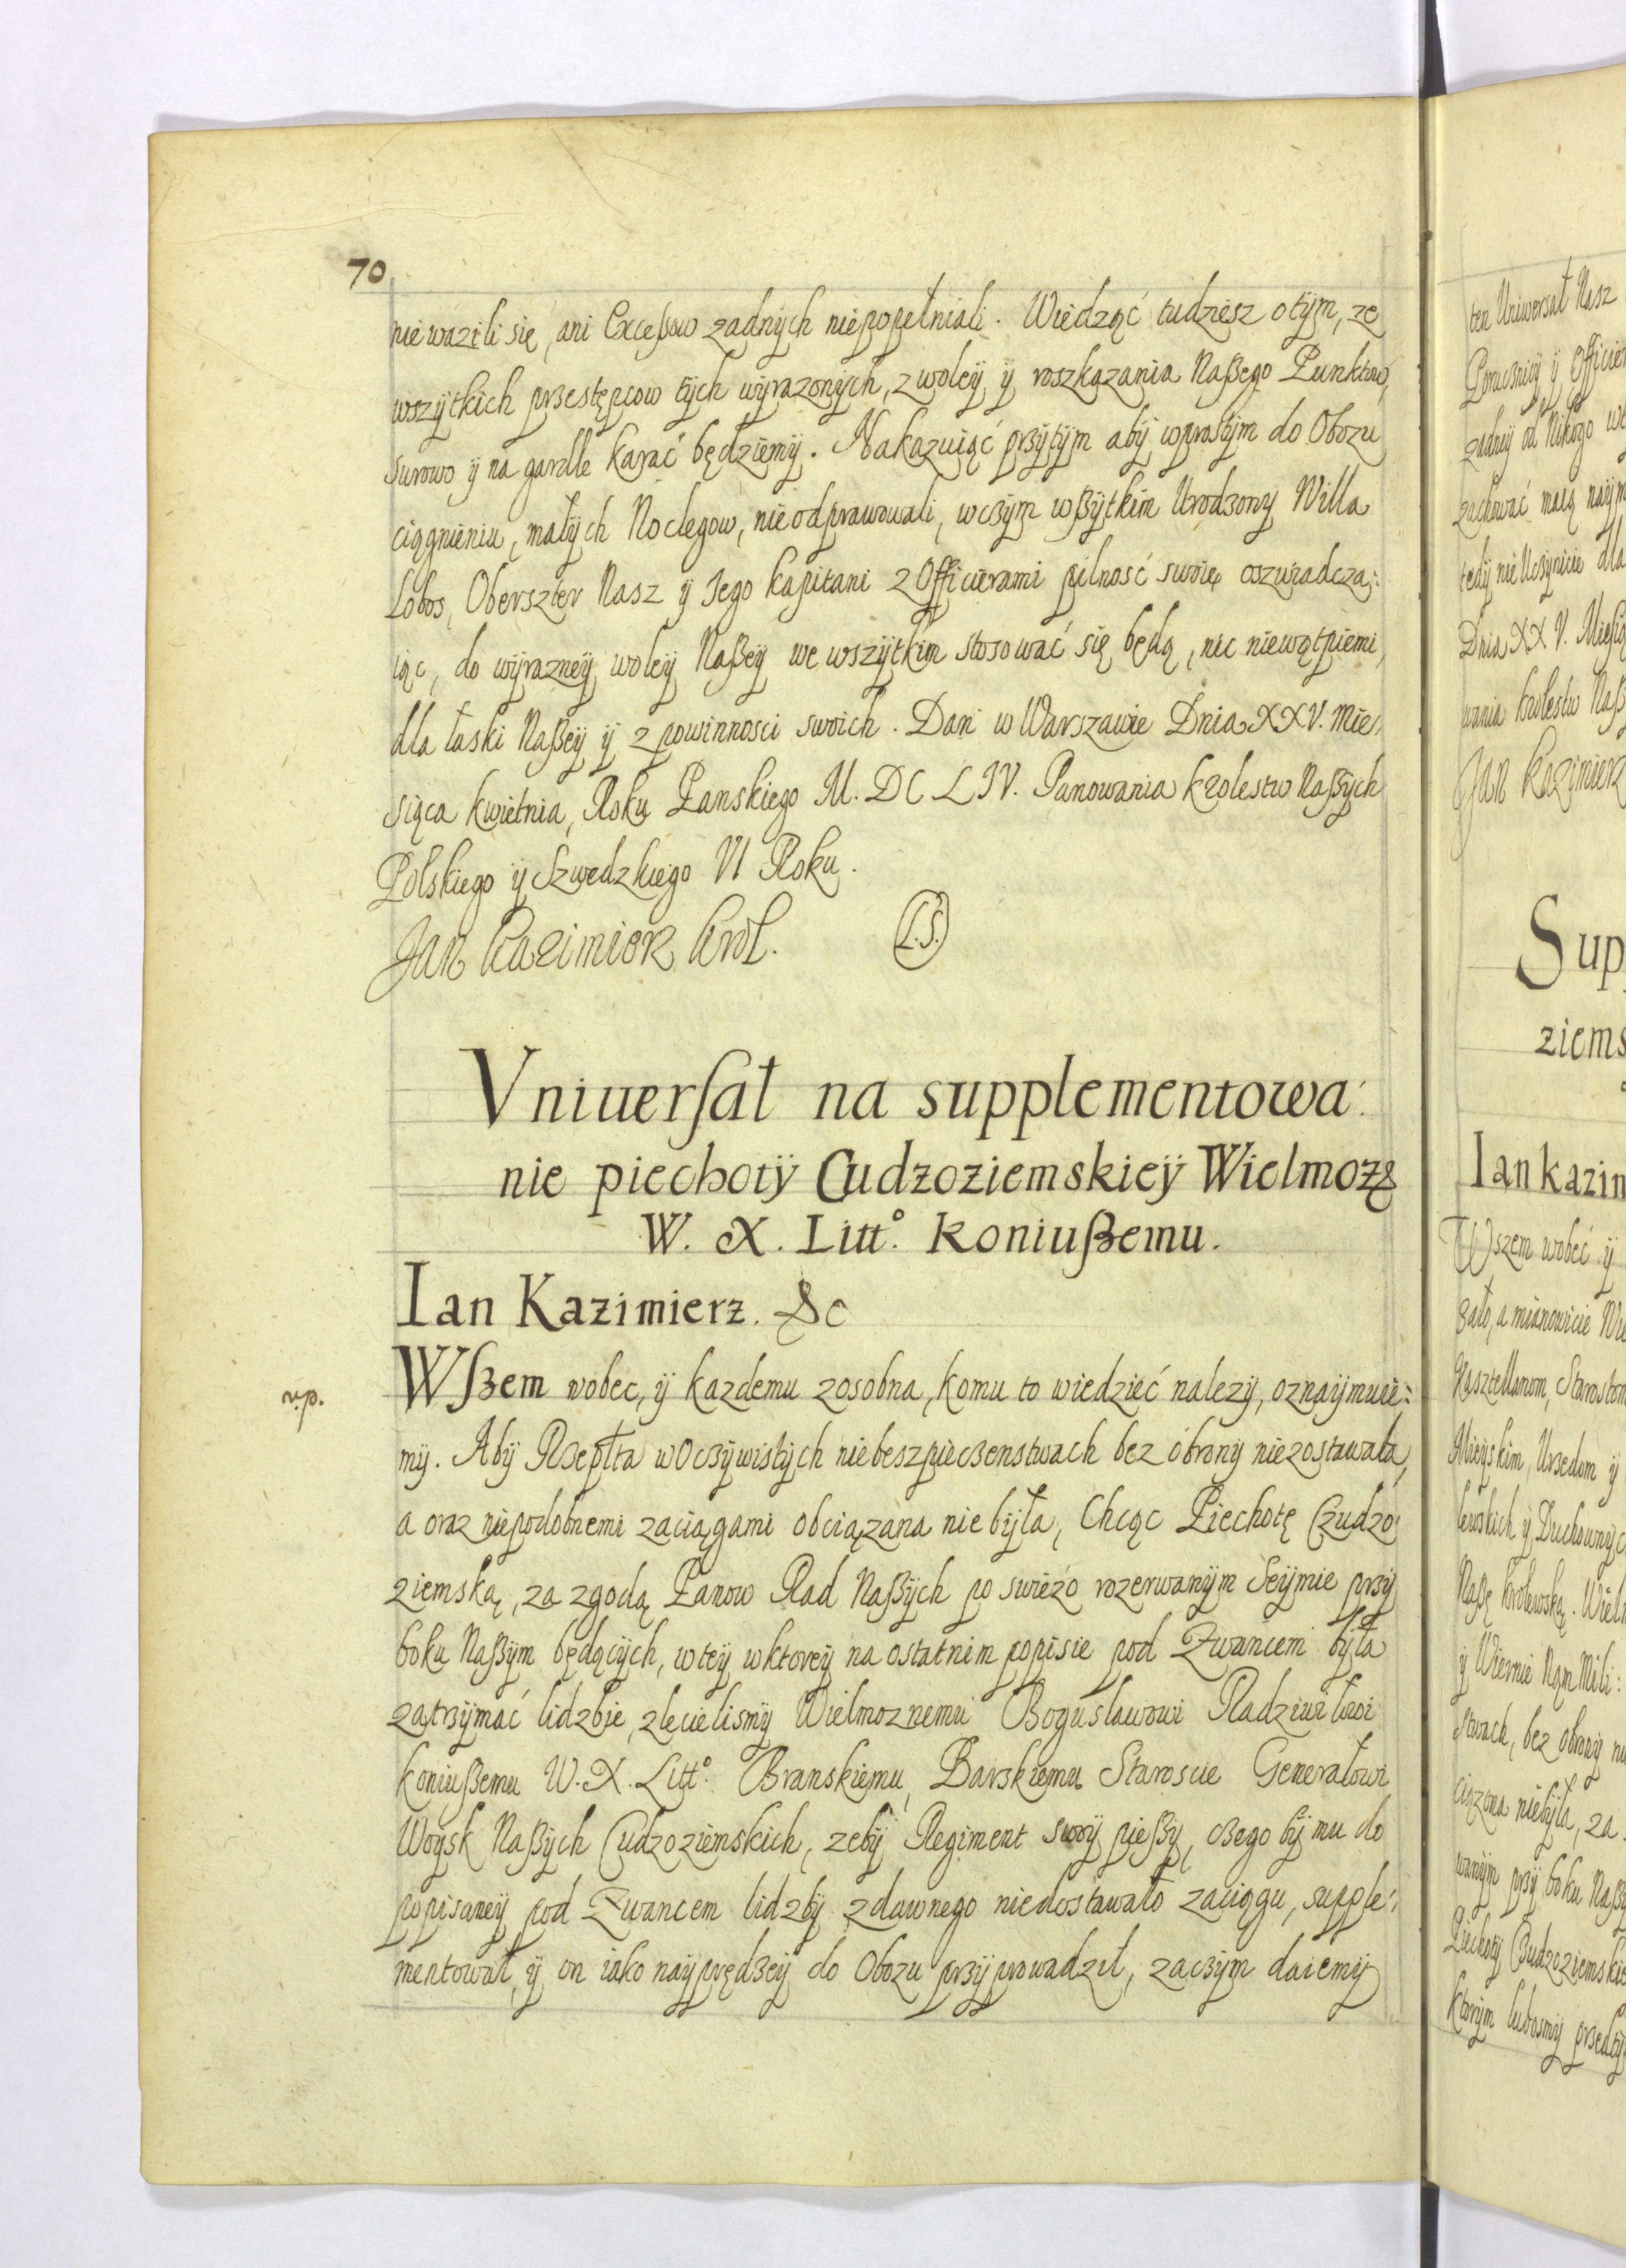 70
niewazili się, ani Excessow zadnÿch niepopełniali. Wiedząć tudziesz o tÿm, ze
wszÿtkich przestępcow tÿch wÿrazonÿch, z woleÿ ÿ roszkązania Naßego Punktow,
surowo ÿ na gardle karać będziemÿ. Nakazuiąć przÿtÿm abÿ wprostÿm do Obozu
ciągnieniu, małÿch Noclegow, nieodprawowali, wczÿm wßÿtkim Urodzony Willa
Lobos, Oberszter Nasz ÿ Jego kapitani z Officierami pilność swoię oszwiadcza:
iąc, do wÿrazneÿ woleÿ Naßeÿ we wszÿtkim stosować się będą, nic niewątpiemi,
dla łaski Naßeÿ ÿ z powinnosci swoich. Dan w Warszawie Dnia XXV. Mie,
siąca kwietnia, Roku Panskiego M. DC LIV. Panowania krolestw Naßÿch
Polskiego ÿ Szwedzkiego VI Roku.
Jan Kazimierz krol. (L.S.)
Vniuersał na supplementowa:
nie piechotÿ Cudzoziemskieÿ Wielmożę
W. X. Litt.° koniußemu.
Ian Kazimierz. &c
v.p.
Wßem wobec, ÿ kazdemu zosobna, komu to wiedzieć nalezÿ, oznaÿmuie:
mÿ. Abÿ Rzeplta w Oczÿwistÿch niebeszpieczenstwach bez obronÿ niezostawała,
a oraz niepodobnemi zaciągami obciązana niebÿła, Chcąc Piechotę Czudzo
ziemską, za zgodą Panow Rad Naßÿch po swieżo rozerwanÿm Seÿmie przÿ
boku Naßÿm będącÿch, w teÿ w ktoreÿ na ostatnim popisie pod Zwancem bÿła
zatrzÿmać lidzbie, zlecielismÿ Wielmoznemu Bogusławowi Radziwiłłowi
koniußemu W. X. Litt.° Branskiemu, Barskiemu Staroscie Generałowi
Woÿsk Naßÿch Cudzoziemskich, zebÿ Regiment swoÿ pießÿ, czego bÿ mu do
popisaneÿ pod Zwancem lidzbÿ zdawnego niedostawało zaciągu, supple,
mentował, ÿ on iako naÿprędzeÿ do Obozu przÿprowadził, zaczÿm daiemÿ
ten Uniwersał Nasz
zadneÿ od Nikogo
zachować maią
tedÿ nie Uczÿnicie dla
Dnia XXV. Miesią
wania krolestw Naß
Jan Kazimierz
Sup
ziems
Ian kazim
Wszem wobec ÿ
a mianowicie
Kasztellanom, Starostom
Mieÿskim, Urzedom ÿ
Duchownÿc
Naßę krolewską.
ÿ Wiernie Nąm Mili:
stwach, bez obronÿ
ciązona niebÿła, za
wanÿm przÿ boku Naß
Piechotÿ Czudzoziemskie
ktorÿm lubosmÿ